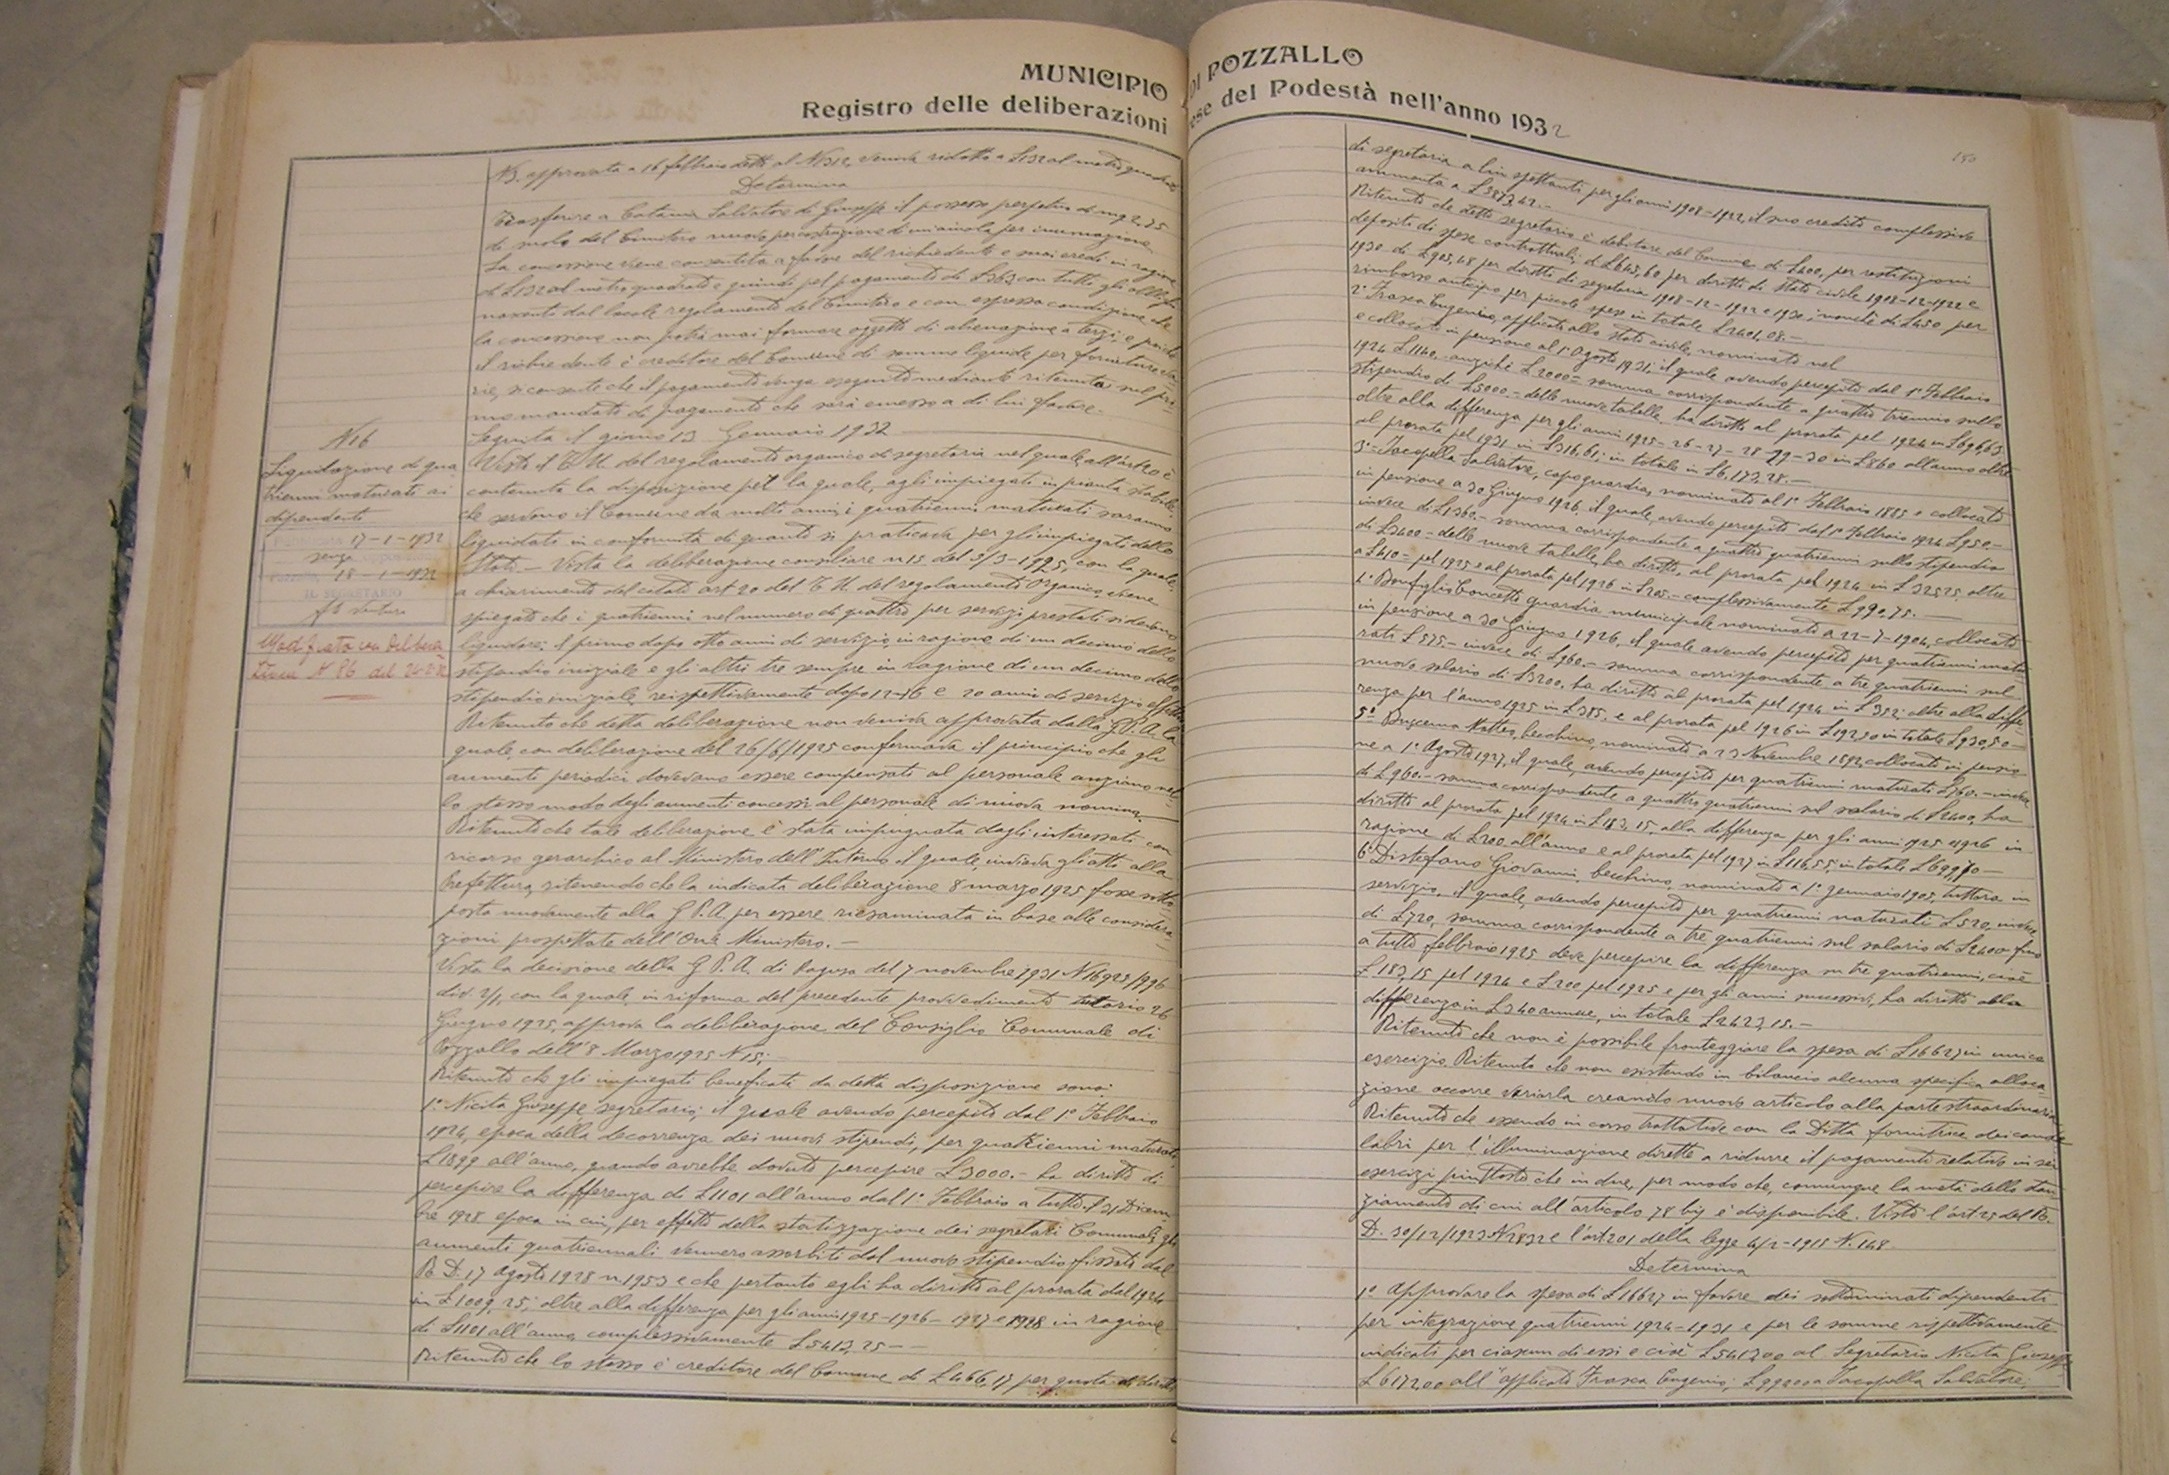 MUNICIPIO DI POZZALLO
Registro delle deliberazioni ese del Podestà nell'anno 1932
N3. approvata a 16 febbraio detto al N1312, veniva ridotto a £132 al metro quadrato
Determina
Trasferire a Catania Salvatore di Giuseppe il possesso perpetuo di mq 2,75
di suolo del Cimitero nuovo per costruzione di un'aiuola per inumazione
La concessione viene consentita a favore del richiedente e suoi eredi in ragione
di £132 al metro quadrato e quindi pel pagamento di £363 con tutti gli obblighi
nascenti dal locale regolamento del Cimitero e con espressa condizione che
la concessione non potrà mai formare oggetto di alienazione a terzi; e poiché
il richiedente è creditore del Comune di somme liquide per forniture va
rie, si consente che il pagamento venga eseguito mediante ritenuta sul pri
mo mandato di pagamento che sarà emesso a di lui favore.
N16
Liquidazione di qua
trienni maturati ai
dipendenti
17-1-1932
senza
18-1-1932
IL SEGRETARIO
Modificata con Delibera
zione N 86 del
Seguita il giorno 13 Gennaio 1932
Visto il T.U. del regolamento organico di segretaria nel quale all'art 20 è
contenuta la disposizione per la quale, agli impiegati in pianta stabile
che servono il Comune da molti anni i quatrienni maturati saranno
liquidati in conformità di quanto si praticava per gli impiegati dello
Stato. - Vista la deliberazione consiliare n 15 del 8/3-1925, con la quale,
a chiarimento del citato art 20 del T.U. del regolamento Organico, viene
spiegato che i quatrienni nel numero di quattro per servizi prestati si devono
liquidare: il primo dopo otto anni di servizio, in ragione di un decimo dello
stipendio iniziale e gli altri tre sempre in ragione di un decimo dello
stipendio iniziale rispettivamente dopo 12-16 e 20 anni di servizio effettivo
Ritenuto che detta deliberazione non veniva approvata dalla G.P.A. la
quale, con deliberazione del 26/6/1925 confermava il principio che gli
aumenti periodici dovevano essere compensati al personale anziano nel
lo stesso modo degli aumenti concessi al personale di nuova nomina,
Ritenuto che tale deliberazione è stata impugnata dagli interessati con
ricorso gerarchico al Ministero dell'Interno il quale, inviava gli atti alla
Prefettura, ritenendo che la indicata deliberazione 8 marzo 1925 fosse sotto
posta nuovamente alla G.P.A. per essere riesaminata in base alle considera
zioni prospettate dell'On. Ministero. -
Vista la decisione della G.P.A. di Ragusa del 7 novembre 1931 N16925/9996
div. 2/1, con la quale, in riforma del precedente provvedimento tutorio 26
Giugno 1925, approva la deliberazione del Consiglio Comunale di
Pozzallo dell'8 Marzo 1925 N15;
Ritenuto che gli impiegati beneficati da detta disposizione sono:
1° Nicita Giuseppe, segretario; il quale avendo percepito dal 1° Febbraio
1924, epoca della decorrenza dei nuovi stipendi, per quatrienni maturati
£1899 all'anno, quando avrebbe dovuto percepire £3000.- ha diritto di
percepire la differenza di £1101 all'anno dal 1° Febbraio a tutto il 31 Dicem
bre 1928 epoca in cui, per effetto della statizzazione dei segretari Comunali, gli
aumenti quatriennali vennero assorbiti dal nuovo stipendio fissato dal
R.D. 17 Agosto 1928 n 1953 e che pertanto egli ha diritto al prorata del 1924
in £1009,25; oltre alla differenza per gli anni 1925-1926-1927 e 1928 in ragione
di £1101 all'anno, complessivamente £5413,25 -
Ritenuto che lo stesso è creditore del Comune di £466,17 per quota di diritti
150
di segretaria a lui spettanti per gli anni 1908-1922, il suo credito complessivo
ammonta a £5879,42.-
Ritenuto che detto segretario è debitore del Comune di £400, per restituzioni
depositi di spese contrattuali, di £645,60 per diritti di Stato civile 1908-12-1922 e
1930 di £905,48 per diritti di segretaria 1908-12-1922 e 1930; nonché di £450 per
rimborso anticipo per piccole spese in totale £2401,08.-
2° Frasca Eugenio, applicato allo stato civile, nominato nel
e collocato in pensione al 1° Agosto 1931; il quale avendo percepito dal 1° Febbraio
1924 £1140.- anziché £2000 - somma corrispondente a quattro trienni sullo
stipendio di £5000 - delle nuove tabelle, ha diritto al prorata pel 1924 in £696,63
oltre alla differenza per gli anni 1925-26-27-28-29-30 in £860 all'anno oltre
al prorata pel 1931 in £316,61; in totale in £6.173,28.-
3° - Iacopella Salvatore, capo guardia, nominato al 1° Febbraio 1885 e collocato
in pensione a 30 Giugno 1926, il quale, avendo percepito dal 1° Febbraio 1924 £950.-
invece di £1360.- somma corrispondente a quattro quatrienni sullo stipendio
di £3400 - delle nuove tabelle, ha diritto, al prorata pel 1924 in £325,25 oltre
a £410 - pel 1925 e al prorata pel 1926 in £205.- complessivamente £990,75.-
4° Bonfiglio Concetto guardia municipale nominato a 22-7-1904, collocato
in pensione a 30 Giugno 1926, il quale avendo percepito per quatrienni matu
rati £575.- invece di £960.- somma corrispondente a tre quatrienni sul
nuovo salario di £3200, ha diritto al prorata pel 1924 in £352 oltre alla diffe
renza per l'anno 1925 in £385. e al prorata pel 1926 in £192,50 in totale £930,50 -
5° Buscema Matteo, becchino, nominato a 23 Novembre 1892, collocato in pensio
ne a 1° Agosto 1927, il quale, avendo percepito per quatrienni maturati £760.- invece
di £960.- somma corrispondente a quattro quatrienni sul salario di £2400, ha
diritto al prorata pel 1924 in £183,15, alla differenza per gli anni 1925 e 1926 in
ragione di £200 all'anno e al prorata pel 1927 in £116,55, in totale £699,70 -
6° Distefano Giovanni, becchino, nominato a 1° gennaio 1905, tuttora in
servizio, il quale, avendo percepito per quatrienni maturati £520, invece
di £720, somma corrispondente a tre quatrienni sul salario di £2400 fino
a tutto febbraio 1925 deve percepire la differenza su tre quatrienni, cioè
£183,15 pel 1924 e £200 pel 1925 e per gli anni successivi, ha diritto alla
differenza in £340 annue, in totale £2423,15.-
Ritenuto che non è possibile fronteggiare la spesa di £16627 in unico
esercizio. Ritenuto che non esistendo in bilancio alcuna specifica alloca
zione occorre variarla creando nuovo articolo alla parte straordinaria
Ritenuto che essendo in corso trattative con la Ditta fornitrice dei cande
labri per l'illuminazione dirette a ridurre il pagamento relativo in sei
esercizi piuttosto che in due, per modo che, comunque la metà dello stan
ziamento di cui all'articolo 78 bis è disponibile. Visto l'art 25 del R.
D. 30/12/1923 N2832 e l'art 201 della legge 4/2-1915 N.148
Determina
1° Approvare la spesa di £16627 in favore dei sottonominati dipendenti
per integrazione quatrienni 1924-1931 e per le somme rispettivamente
indicati per ciascun di essi e cioè £5413,00 al Segretario Nicita Giuseppe
£6172,00 all'applicato Frasca Eugenio; £992,00 a Iacopella Salvatore;